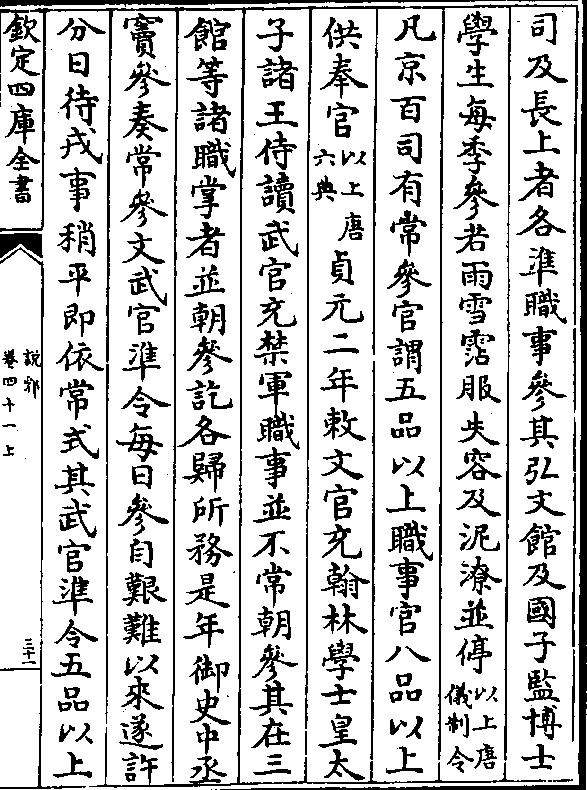 司及長上者各準職事參其弘文館及國子監博士
學生每季參若雨雪霑服失容及泥潦並停以上唐儀制令
凡京百司有常參官謂五品以上職事官八品以上
供奉官以上唐六典貞元二年敕文官充翰林學士皇太
子諸王侍讀武官充禁軍職事並不常朝參其在三
館等諸職掌者並朝參訖各歸所務是年御史中丞
竇參奏常參文武官準令每日參自艱難以來遂許
分日待戎事稍平即依常式其武官準令五品以上
欽定四庫全書
說郛
卷四十一上
三十一